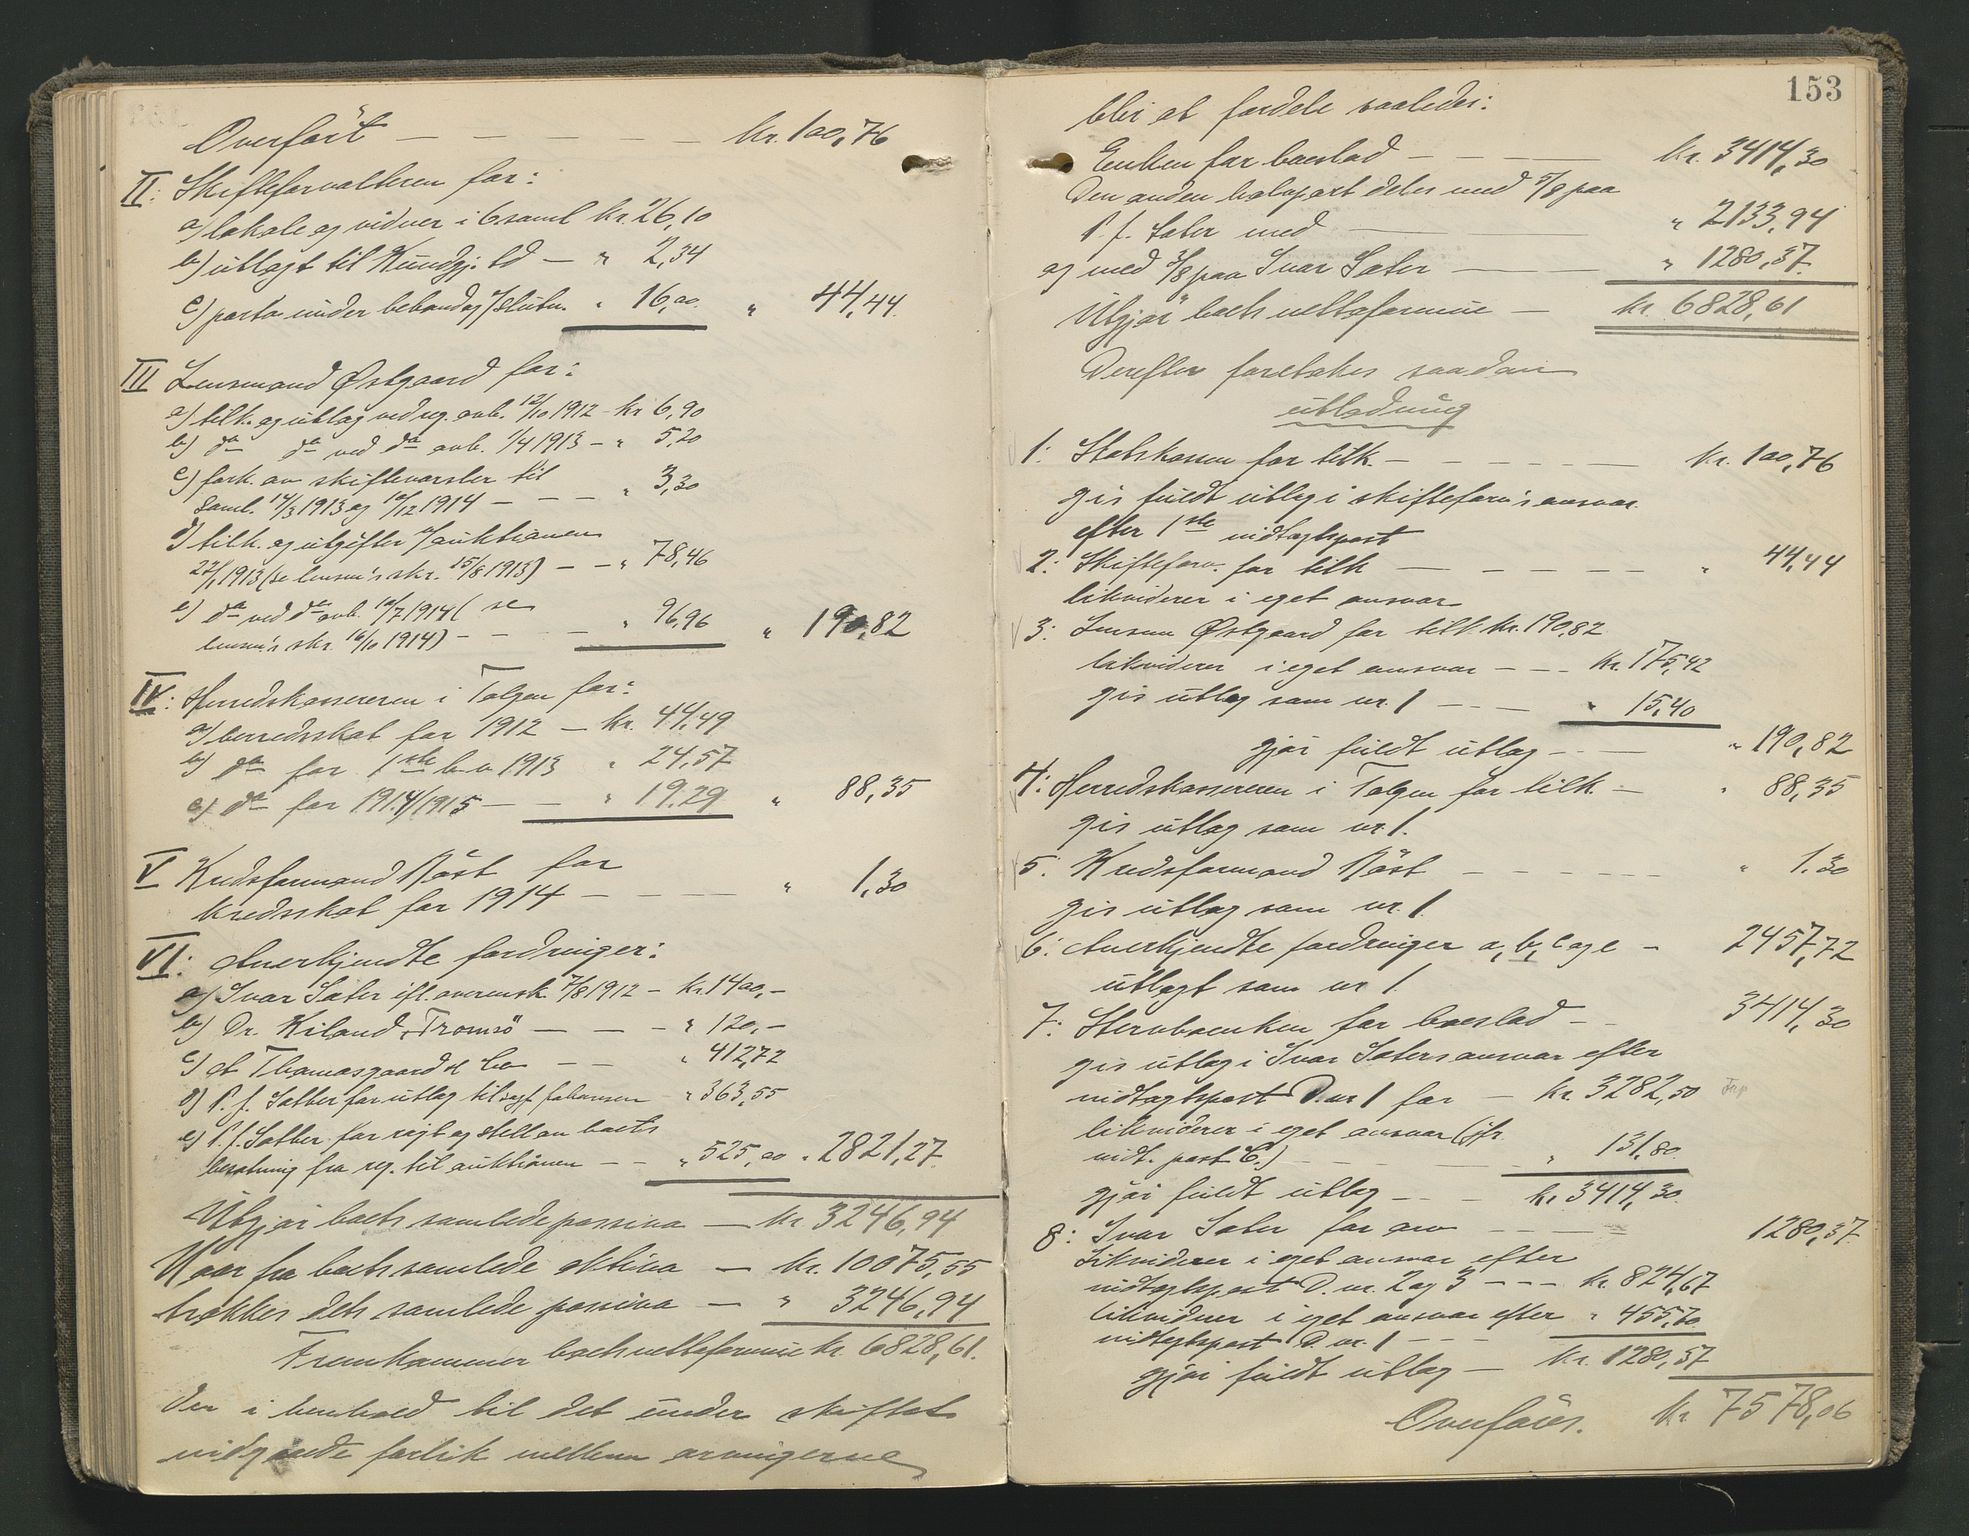 Overført — — — — — kr. 100,76
II: Skifteforvalteren for:
a) lokale og vidner i 6 saml kr. 26,10
b) utlagt til Kundgj. td — " 2,34
c) porto under behandlg/slutn. " 16,00. " 44,44.
III Lensmand Østgaard for:
a) tilk. og utlæg ved reg. avh. 12/10 1912 - kr 6,90
b) do do ved do avh. 1/4 1913 — " 5,20
c) fork. av skiftevarsler til
saml. 14/3 1913 og 10/12 1914 — — — " 3,30
d) tilk. og utgifter v/auktionen
27/1 1913 (se lensm's skr. 15/8 1913) — — " 78,46
e) do ved do avh. 10/7 1914 (se
lensm's skr. 16/10 1914) — — — " 96,96 " 190,82
IV: Herredskassereren i Tolgen for:
a) herredsskat for 1912 — kr. 44,49
b) do for 1ste h.a 1913 " 24,57
c) do for 1914/1915 — — " 19,29 " 88,35
V Kredsformand Røst for
kredsskat for 1914 — — — — " 1,30
VI: Anerkjendte fordringer:
a) Ivar Sater ifl. overensk. 7/8 1912 — kr. 1400,-
b) Dr. Kiland, Tromsø — — — " 120,-
c) A Thomasgaard & Co — — " 412,72
d) P. J. Satter for utlæg til sagf. Johansen " 363,55
e) P. J. Satter for røgt og stell av boets
besætning fra reg. til auktionen — — " 525,00 " 2821,27.
Utgjør boets samlede passiva — kr. 3246,94
Naar fra boets samlede aktiva — kr. 10075,55
trækkes dets samlede passiva — " 3246,94
Fremkommer boets nettoformue kr. 6828,61.
der i henhold til det under skiftet
indgaaede forlik mellem arvingerne
153
blir at fordele saaledes:
Enken for boeslod — — — kr. 3414,30
Den anden halvpart deles med 5/8 paa
P. J. Sater med — — " 2133,94
og med 3/8 paa Ivar Sater — — " 1280,37.
Utgjør boets nettoformue — kr 6828,61
Derefter foretakes saadan
utlodning
1: Statskassen for tilk. — — — — — kr. 100,76
gis fuldt utlæg i skifteforv's ansvar
efter 1ste indtægtspost
2: Skifteforv. for tilk — — — — — " 44,44
likviderer i eget ansvar
3: Lensm Østgaard for tilk kr. 190,82
likviderer i eget ansvar — — — kr. 175,42
gis utlæg som nr. 1 — — — " 15,40
gjør fuldt utlæg — — — " 190,82
4: Herredskassereren i Tolgen for tilk. — " 88,35
gis utlæg som nr. 1.
5: Kredsformand Røst — — — — — " 1,30
gis utlæg som nr. 1.
6: Anerkjendte fordringer a, b, c og e — 2457,72
utlagt som nr 1.
7: Stervboenken for boeslod — — 3414,30
gis utlæg i Ivar Saters ansvar efter
indtægtspost D. nr 1 for — kr. 3282,50
likviderer i eget ansvar (jfr.
indt. post C.) — — — — — " 131,80
gjør fuldt utlæg — — — kr 3414,30.
8: Ivar Sater for arv — — — — 1280,37.
Likviderer i eget ansvar efter
indtægtspost D. nr. 2 og 3 — — — kr. 824,67
likviderer i eget ansvar efter " 455,70
indtægtspost D. nr. 1 — — —
gjør fuldt utlæg — kr. 1280,37
Overføres. kr 7578,06